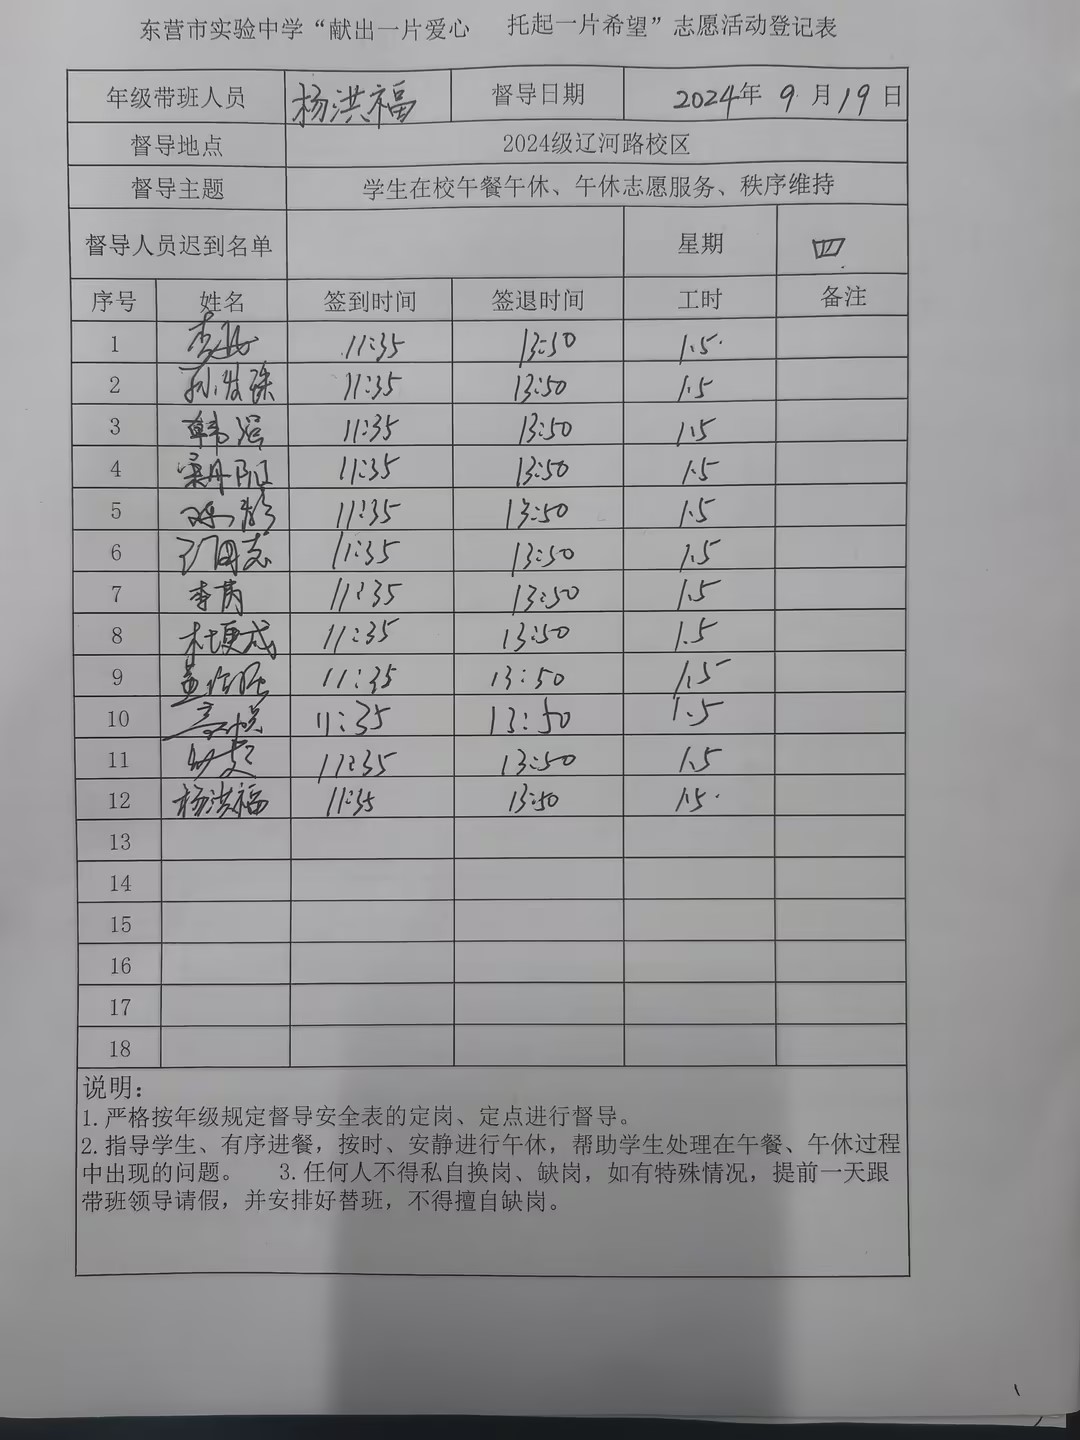 东营市实验中学“献出一片爱心 托起一片希望”志愿活动登记表
年级带班人员 杨洪福 督导日期 2024年 9 月 19 日
督导地点 2024级辽河路校区
督导主题 学生在校午餐午休、午休志愿服务、秩序维持
督导人员迟到名单 星期 四
序号 姓名 签到时间 签退时间 工时 备注
1 11:35 13:50 1.5
2 11:35 13:50 1.5
3 11:35 13:50 1.5
4 11:35 13:50 1.5
5 11:35 13:50 1.5
6 11:35 13:50 1.5
7 11:35 13:50 1.5
8 11:35 13:50 1.5
9 11:35 13:50 1.5
10 11:35 13:50 1.5
11 11:35 13:50 1.5
12 杨洪福 11:35 13:50 1.5
13
14
15
16
17
18
说明：
1.严格按年级规定督导安全表的定岗、定点进行督导。
2.指导学生、有序进餐，按时、安静进行午休，帮助学生处理在午餐、午休过程
中出现的问题。 3.任何人不得私自换岗、缺岗，如有特殊情况，提前一天跟
带班领导请假，并安排好替班，不得擅自缺岗。